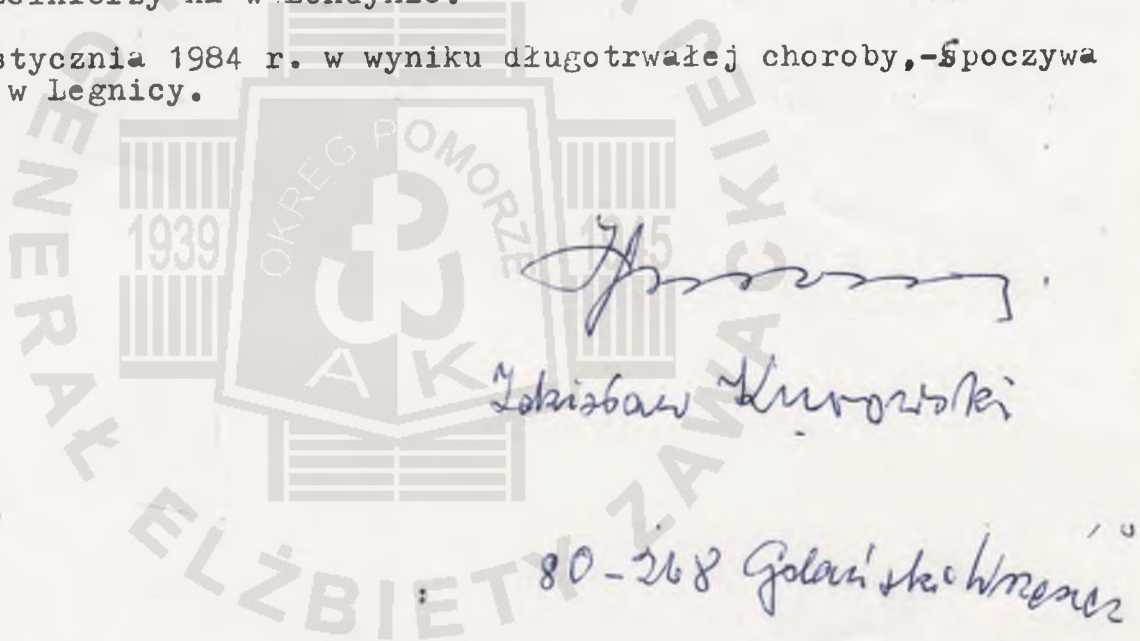 na w Londynie.
stycznia 1984 r. w wyniku długotrwałej choroby,-Spoczywa
w Legnicy.
GENERAŁ ELŻBIETY ZAWACKIEJ
OKRĘG POMORZE
1939
1945
AK
Zdzisław Kurowski
80-268 Gdańsk-Wrzeszcz